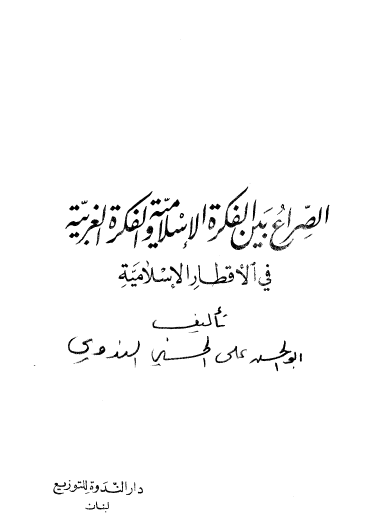 الصِّراعُ بَينَ الفكرة الإسْلاميّة والفكرة الغربيّة
في الأقطار الإسلاميّة
تأليف
ابو الحسن علي الحسني الندوي
دار النّدوة للتوزيع
لبنان